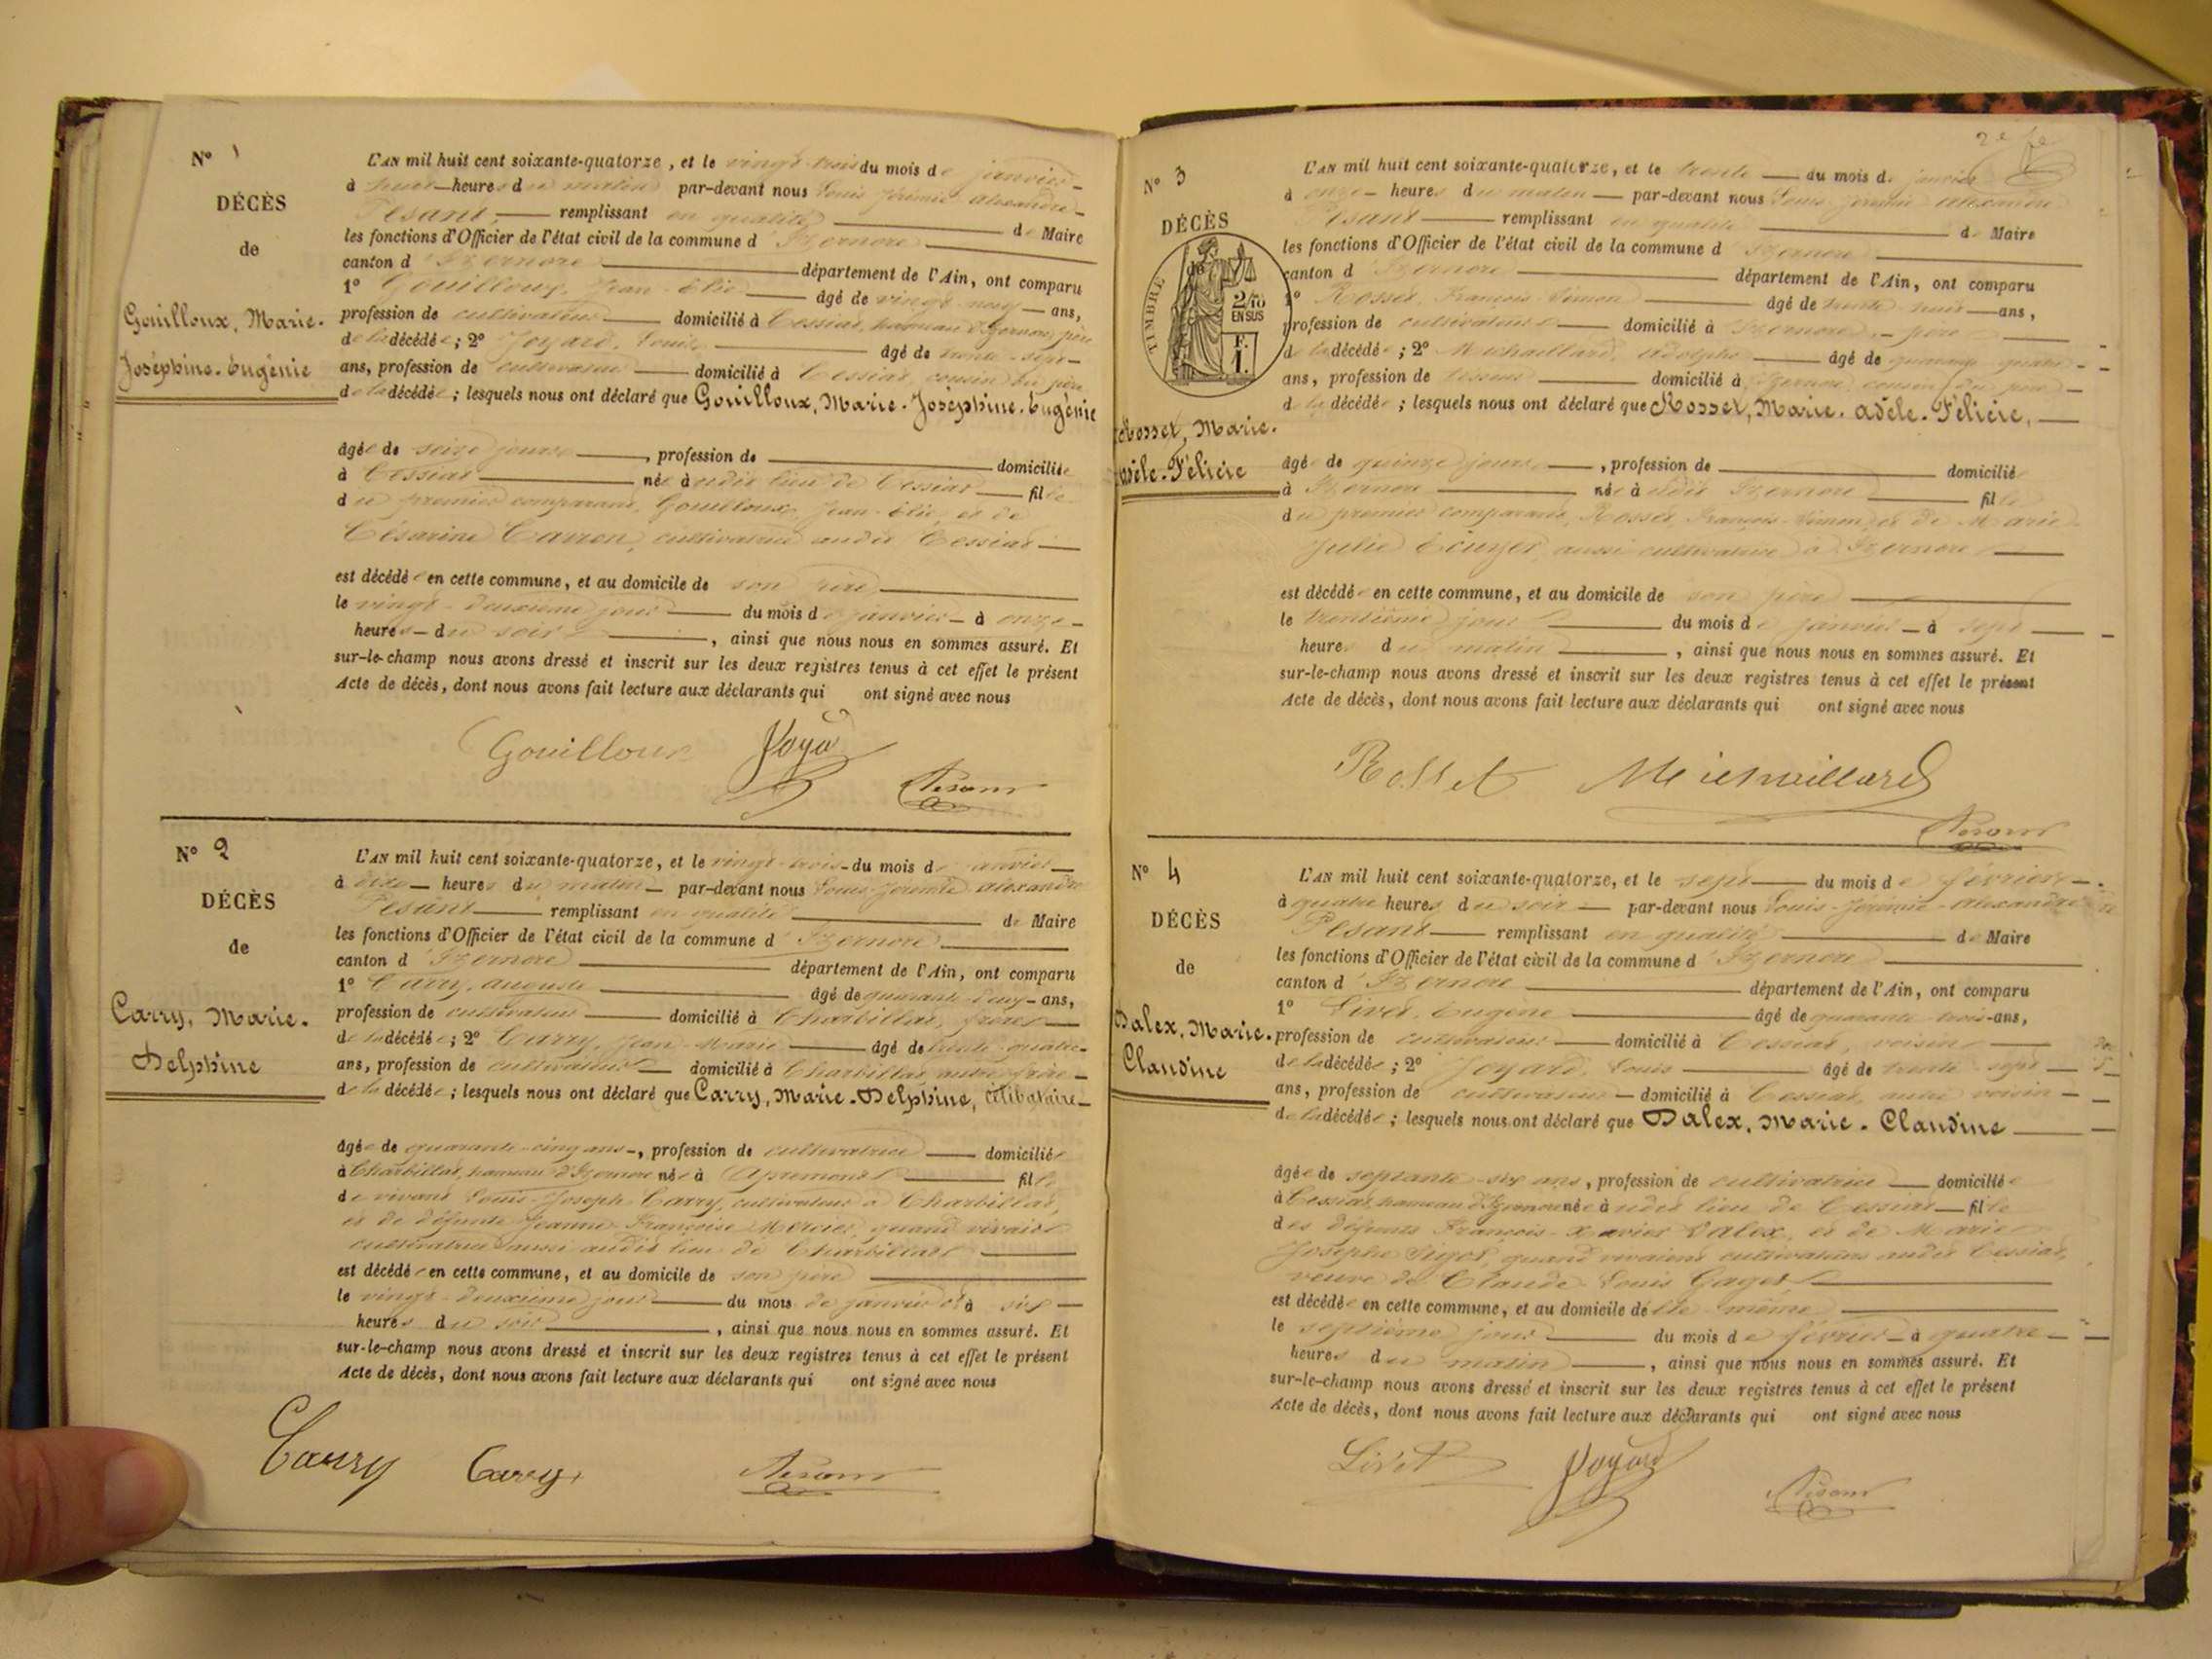 N° 1
DÉCÈS
de
Gouilloux, Marie-
Joséphine-Eugénie
L'AN mil huit cent soixante-quatorze, et le vingt-trois du mois de janvier
à heures du matin par-devant nous Louis Jérémie Alexandre
Pesant remplissant en qualité de Maire
les fonctions d'Officier de l'état civil de la commune d'Izernore
canton d'Izernore département de l'Ain, ont comparu
1° Gouilloux, Jean-Elie âgé de vingt-neuf ans,
profession de cultivateur domicilié à Cessiat, hameau d'Izernore, père
de la décédée; 2° Joyard, Louis âgé de trente-sept
ans, profession de cultivateur domicilié à Cessiat, cousin du père
de la décédée; lesquels nous ont déclaré que Gouilloux, Marie-Joséphine-Eugénie
âgée de seize jours, profession de domiciliée
à Cessiat née à udit lieu de Cessiat fille
du premier comparant, Gouilloux, Jean-Elie, et de
Césarine Carron, cultivatrice audit Cessiat
est décédée en cette commune, et au domicile de son père
le vingt-deuxième jour du mois de janvier à onze
heures du soir, ainsi que nous nous en sommes assuré. Et
sur-le-champ nous avons dressé et inscrit sur les deux registres tenus à cet effet le présent
Acte de décès, dont nous avons fait lecture aux déclarants qui ont signé avec nous
Gouilloux Joyard Pesant
N° 2
DÉCÈS
de
Carry, Marie-
Delphine
L'AN mil huit cent soixante-quatorze, et le vingt-trois du mois de janvier
à dix heures du matin par-devant nous Louis Jérémie Alexandre
Pesant remplissant en qualité de Maire
les fonctions d'Officier de l'état civil de la commune d'Izernore
canton d'Izernore département de l'Ain, ont comparu
1° Carry, Auguste âgé de quarante-deux ans,
profession de cultivateur domicilié à Charbillat, frère
de la décédée; 2° Carry, Jean-Marie âgé de trente-quatre
ans, profession de cultivateur domicilié à Charbillat, autre frère
de la décédée; lesquels nous ont déclaré que Carry, Marie-Delphine, célibataire
âgée de quarante-cinq ans, profession de cultivatrice domiciliée
à Charbillat, hameau d'Izernore née à Apremont fille
de vivant Louis-Joseph Carry, cultivateur à Charbillat,
et de défunte Jeanne-Françoise Mercier, quand vivait
cultivatrice aussi audit lieu de Charbillat
est décédée en cette commune, et au domicile de son père
le vingt-deuxième jour du mois de janvier à six
heures du soir, ainsi que nous nous en sommes assuré. Et
sur-le-champ nous avons dressé et inscrit sur les deux registres tenus à cet effet le présent
Acte de décès, dont nous avons fait lecture aux déclarants qui ont signé avec nous
Carry Carry Pesant
2e
N° 3
DÉCÈS
TIMBRE
2/10
EN SUS
F.
1.
Rosset, Marie-
Adèle-Félicie
L'AN mil huit cent soixante-quatorze, et le trente du mois de janvier
à onze heures du matin par-devant nous Louis Jérémie Alexandre
Pesant remplissant en qualité de Maire
les fonctions d'Officier de l'état civil de la commune d'Izernore
canton d'Izernore département de l'Ain, ont comparu
1° Rosset, François-Simon âgé de trente-huit ans,
profession de cultivateur domicilié à Izernore, père
de la décédée; 2° Michaillard Adolphe âgé de quarante-quatre
ans, profession de domicilié à Izernore, cousin du père
de la décédée; lesquels nous ont déclaré que Rosset, Marie-Adèle-Félicie,
âgée de quinze jours, profession de domiciliée
à Izernore née à udit Izernore fille
du premier comparant, Rosset, François-Simon, et de Marie-
Julie Ecuyer, aussi cultivatrice à Izernore
est décédée en cette commune, et au domicile de son père
le trentième jour du mois de janvier à sept
heures du matin, ainsi que nous nous en sommes assuré. Et
sur-le-champ nous avons dressé et inscrit sur les deux registres tenus à cet effet le présent
Acte de décès, dont nous avons fait lecture aux déclarants qui ont signé avec nous
Rosset Michaillard
Pesant
N° 4
DÉCÈS
de
Dalex, Marie-
Claudine
L'AN mil huit cent soixante-quatorze, et le sept du mois de février
à quatre heures du soir par-devant nous Louis-Jérémie-Alexandre
Pesant remplissant en qualité de Maire
les fonctions d'Officier de l'état civil de la commune d'Izernore
canton d'Izernore département de l'Ain, ont comparu
1° Livet, Eugène âgé de quarante-trois ans,
profession de cultivateur domicilié à Cessiat, voisin
de la décédée; 2° Joyard, Louis âgé de trente-sept
ans, profession de cultivateur domicilié à Cessiat, autre voisin
de la décédée; lesquels nous ont déclaré que Dalex, Marie-Claudine
âgée de septante-six ans, profession de cultivatrice domiciliée
à Cessiat, hameau d'Izernore née à udit lieu de Cessiat fille
des défunts François-Xavier Dalex, et de Marie
Josephe quand vivaient cultivateurs audit Cessiat,
veuve de Claude-Louis Gaget
est décédée en cette commune, et au domicile d'elle-même
le septième jour du mois de février à quatre
heures du matin, ainsi que nous nous en sommes assuré. Et
sur-le-champ nous avons dressé et inscrit sur les deux registres tenus à cet effet le présent
Acte de décès, dont nous avons fait lecture aux déclarants qui ont signé avec nous
Livet Joyard Pesant